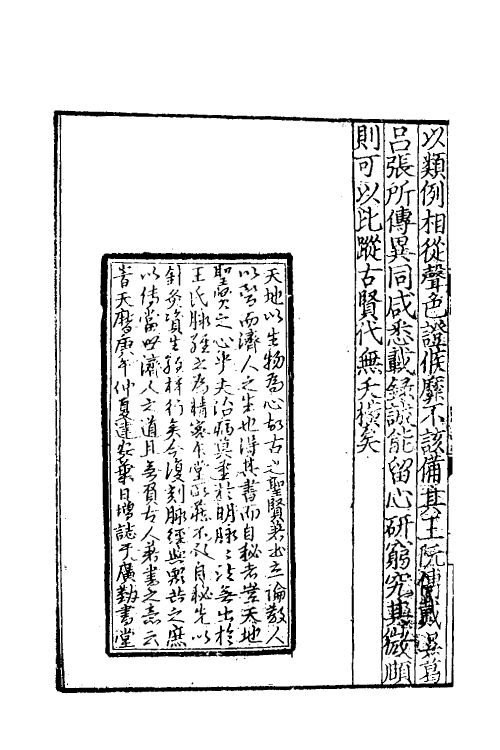 以類例相從聲色證候靡不該備其王阮傅戴吳葛
呂張所傳異同咸悉載錄誠能留心研窮究其微頤
則可以比蹤古賢代無夭橫矣
天地以生物為心故古之聖賢著書立論教人
以醫而濟人之生也得其書而自秘者豈天地
聖賢之心乎夫治病莫重於明脉〻法無出於
王氏脉經之為精密本堂所藏不敢自秘先以
針灸資生經梓行矣今復刻脉經與眾共之庶
以傳當世濟人之道且無負古人著書之意云
旹天曆庚午仲夏建安葉日增誌于廣勤書堂